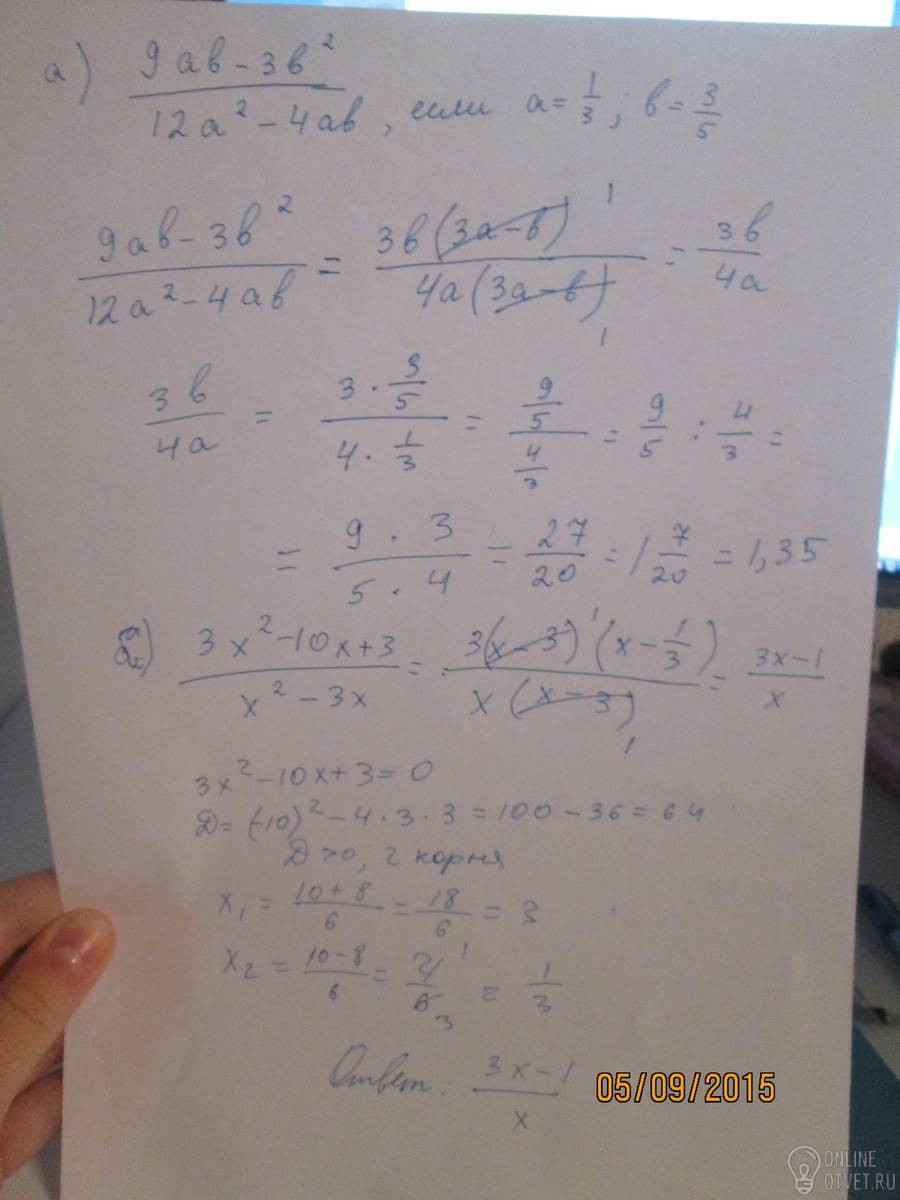 а) (9ab - 3b²)/(12a² - 4ab), если a = 1/3; b = 3/5
(9ab - 3b²)/(12a² - 4ab) = (3b(3a-b) ¹)/(4a(3a-b) ₁) = 3b/4a
3b/4a = (3 · 3/5)/(4 · 1/3) = (9/5)/(4/3) = 9/5 : 4/3 =
= (9 · 3)/(5 · 4) = 27/20 = 1 7/20 = 1,35
б) (3x² - 10x + 3)/(x² - 3x) = (3(x-3)¹(x - 1/3))/(x(x-3) ₁) = (3x-1)/x
3x² - 10x + 3 = 0
Д = (-10)² - 4 · 3 · 3 = 100 - 36 = 64
Д > 0, 2 корня
x₁ = (10 + 8)/6 = 18/6 = 3
x₂ = (10-8)/6 = 2 ¹/6 ₃ = 1/3
Ответ: (3x-1)/x
05/09/2015
ONLINE
OTVET.RU